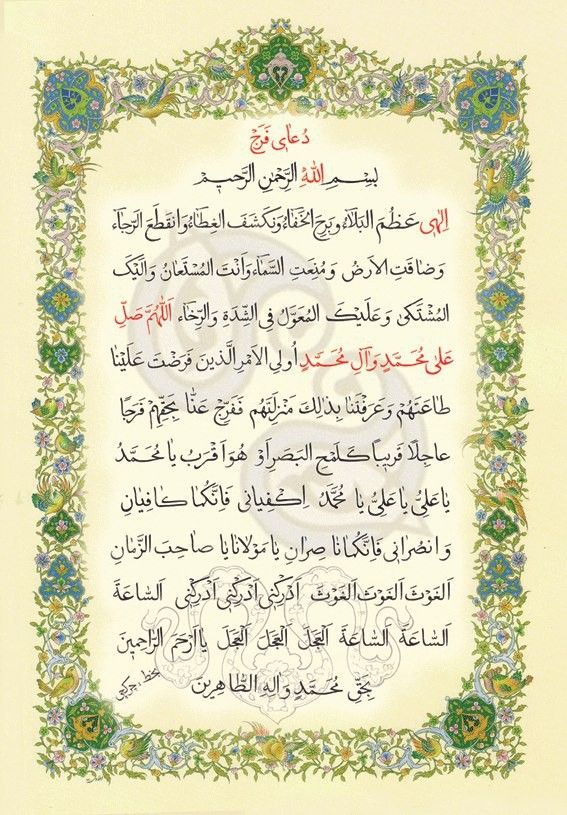 دُعای فَرَج
بِسْمِ اللهِ الرَّحْمٰنِ الرَّحیمِ
اِلٰهی عَظُمَ الْبَلاٰءُ وَبَرِحَ الْخَفٰاءُ وَنْكَشَفَ الْغِطٰاءُ وَانْقَطَعَ الرَّجٰاءُ
وَضٰاقَتِ الْاَرْضُ وَمُنِعَتِ السَّمٰاءُ وَاَنْتَ الْمُسْتَعٰانُ وَاِلَیْكَ
الْمُشْتَكىٰ وَعَلَیْكَ الْمُعَوَّلُ فِی الشِّدَّةِ وَالرَّخٰاءِ اَللّٰهُمَّ صَلِّ
عَلىٰ مُحَمَّدٍ وَاٰلِ مُحَمَّدٍ اُولِی الْاَمْرِ الَّذینَ فَرَضْتَ عَلَیْنٰا
طٰاعَتَهُمْ وَعَرَّفْتَنٰا بِذٰلِكَ مَنْزِلَتَهُمْ فَفَرِّجْ عَنّٰا بِحَقِّهِمْ فَرَجًا
عٰاجِلًا قَریبًا كَلَمْحِ الْبَصَرِ اَوْ هُوَ اَقْرَبُ یٰا مُحَمَّدُ
یٰا عَلِیُّ یٰا عَلِیُّ یٰا مُحَمَّدُ اِكْفِیٰانی فَاِنَّكُمٰا كٰافِیٰانِ
وَانْصُرٰانی فَاِنَّكُمٰا نٰاصِرٰانِ یٰا مَوْلٰانٰا یٰا صٰاحِبَ الزَّمٰانِ
اَلْغَوْثَ اَلْغَوْثَ اَلْغَوْثَ اَدْرِكْنی اَدْرِكْنی اَدْرِكْنی اَلسّٰاعَةَ
اَلسّٰاعَةَ اَلسّٰاعَةَ اَلْعَجَلَ اَلْعَجَلَ اَلْعَجَلَ یٰا اَرْحَمَ الرّٰاحِمینَ
بِحَقِّ مُحَمَّدٍ وَاٰلِهِ الطّٰاهِرینَ